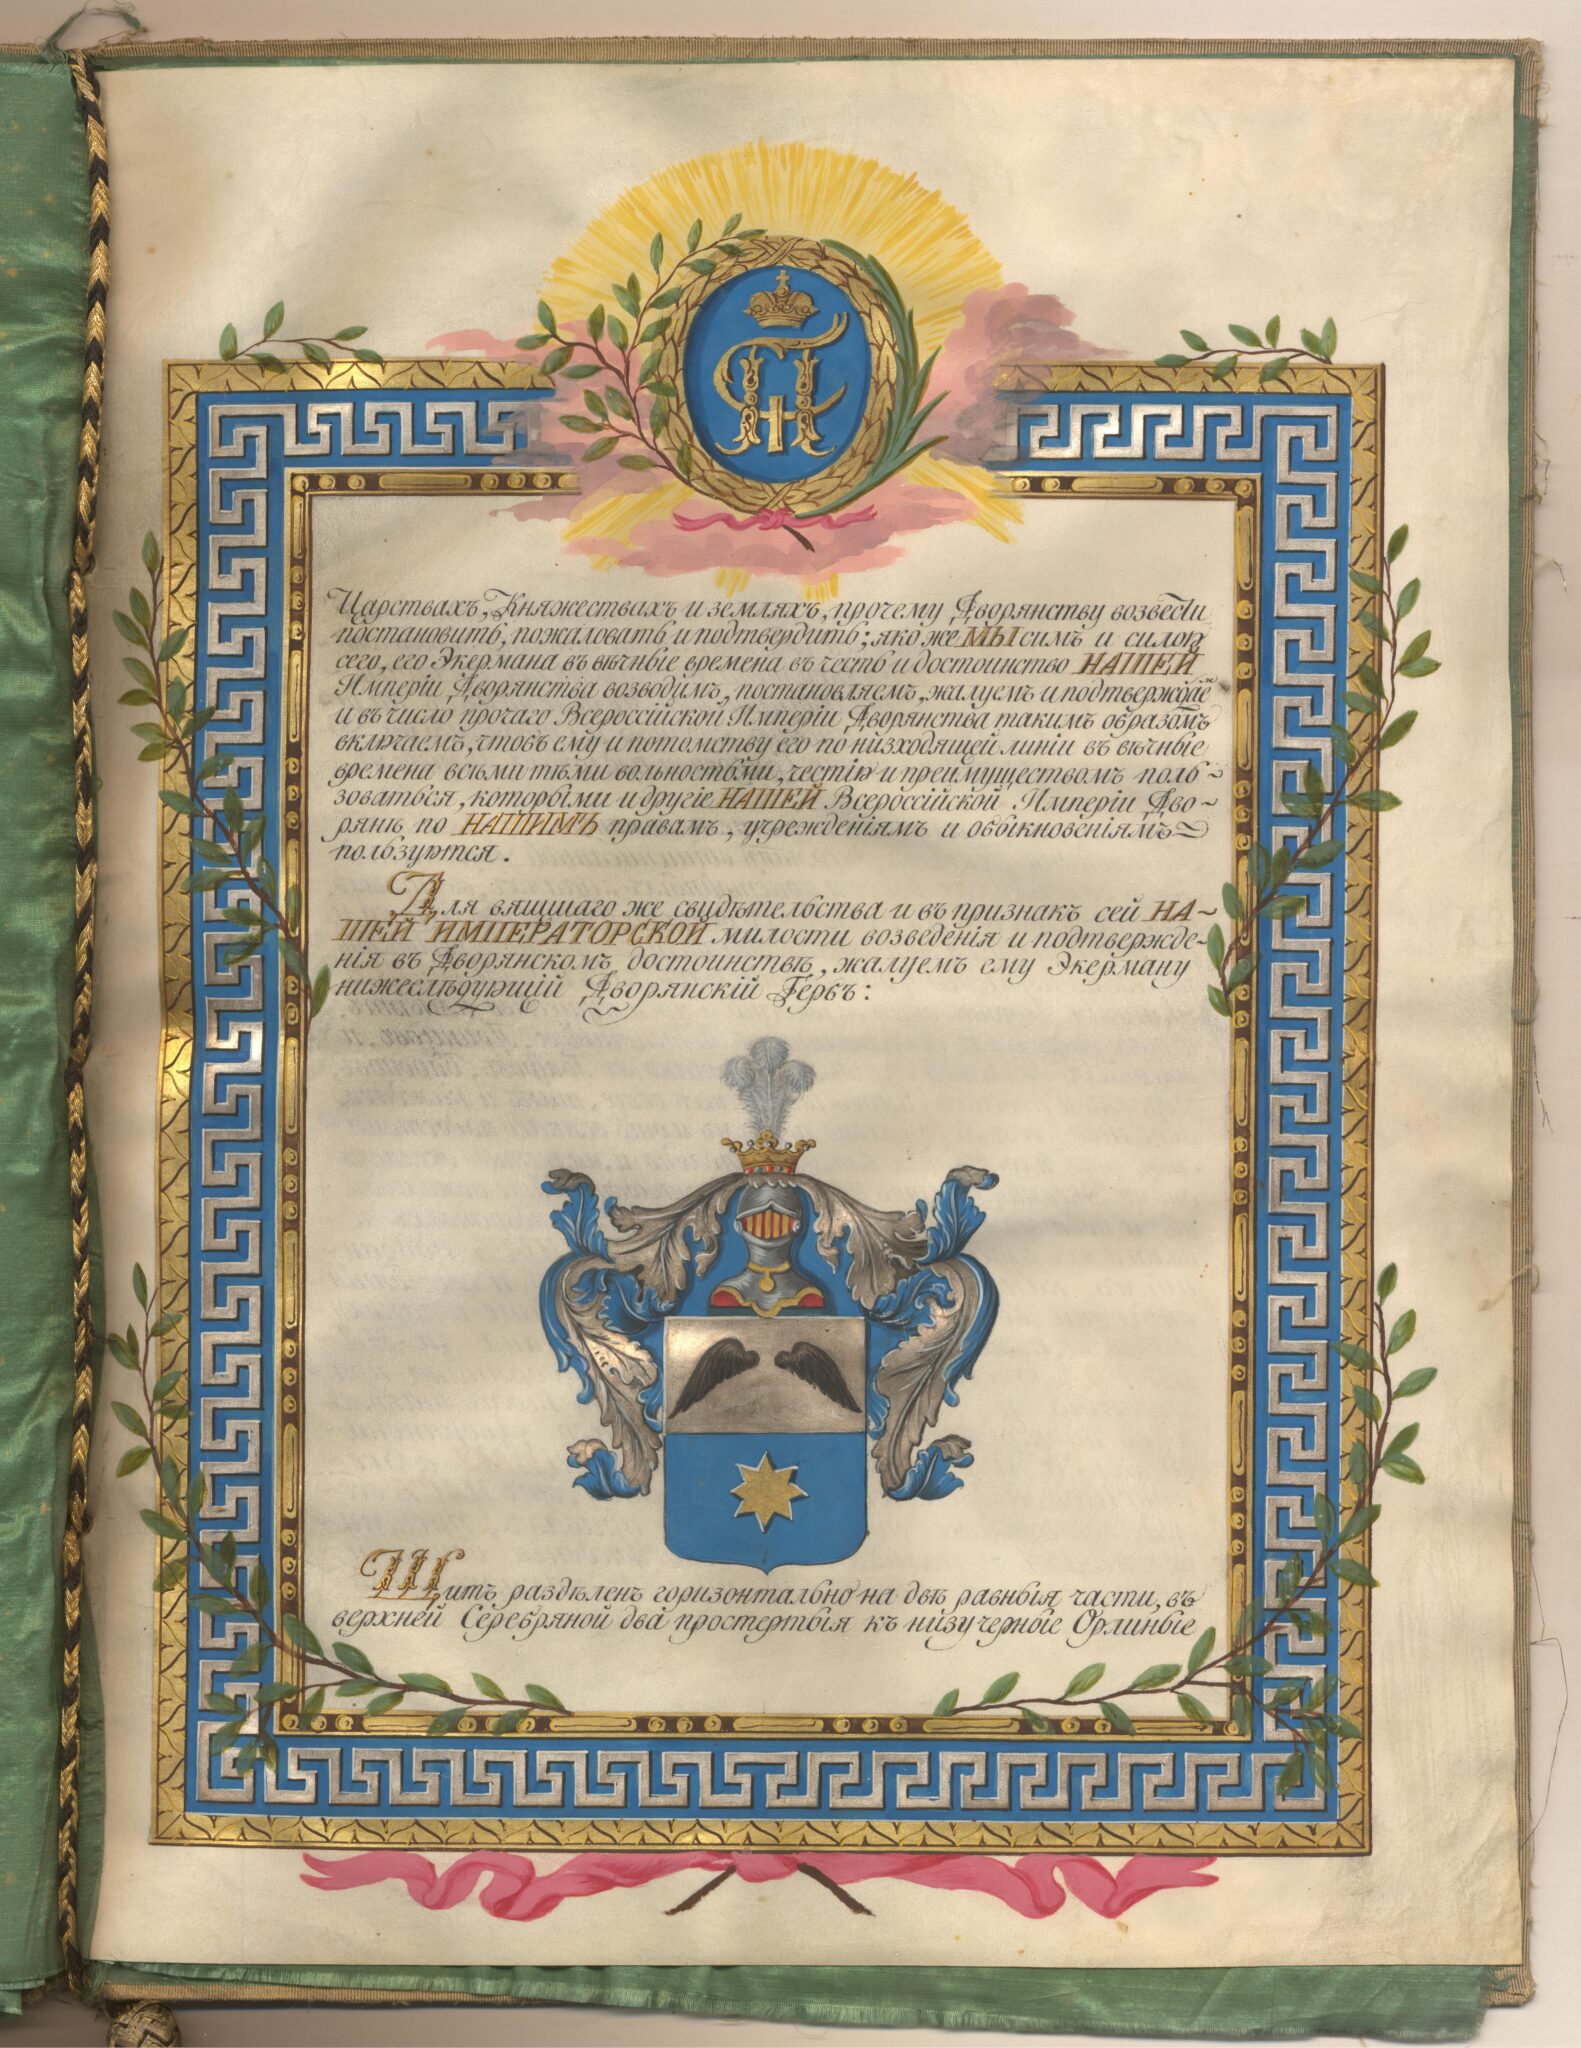 Царствахъ, Княжествахъ и земляхъ, прочему Дворянству возвести
постановить, пожаловать и подтвердить; яко же МЫ симъ и силою
сего, его Экермана въ вѣчные времена въ честь и достоинство НАШЕЙ
Имперіи Дворянства возводимъ, постановляемъ, жалуемъ и подтверждаемъ
и въ число прочаго Всероссійской Имперіи Дворянства такимъ образомъ
включаемъ, чтобъ ему и потомству его по низходящей линіи въ вѣчные
времена всѣми тѣми вольностьми, честію и преимуществомъ поль-
зоваться, которыми и другіе НАШЕЙ Всероссійской Имперіи Дво-
ряне по НАШИМЪ правамъ, учрежденіямъ и обыкновеніямъ
пользуются.
Для вящшаго же свидѣтельства и въ признакъ сей НА-
ШЕЙ ИМПЕРАТОРСКОЙ милости возведенія и подтвержде-
нія въ Дворянскомъ достоинствѣ, жалуемъ ему Экерману
нижеслѣдующій Дворянскій Гербъ:
Щитъ раздѣленъ горизонтально на двѣ равныя части, въ
верхней Серебряной два простертыя къ низу черные Орлиные